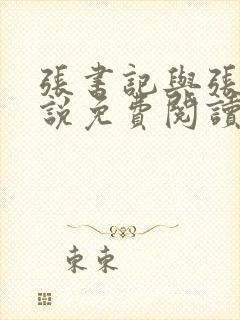 張書記與張
說免費閱讀
東東